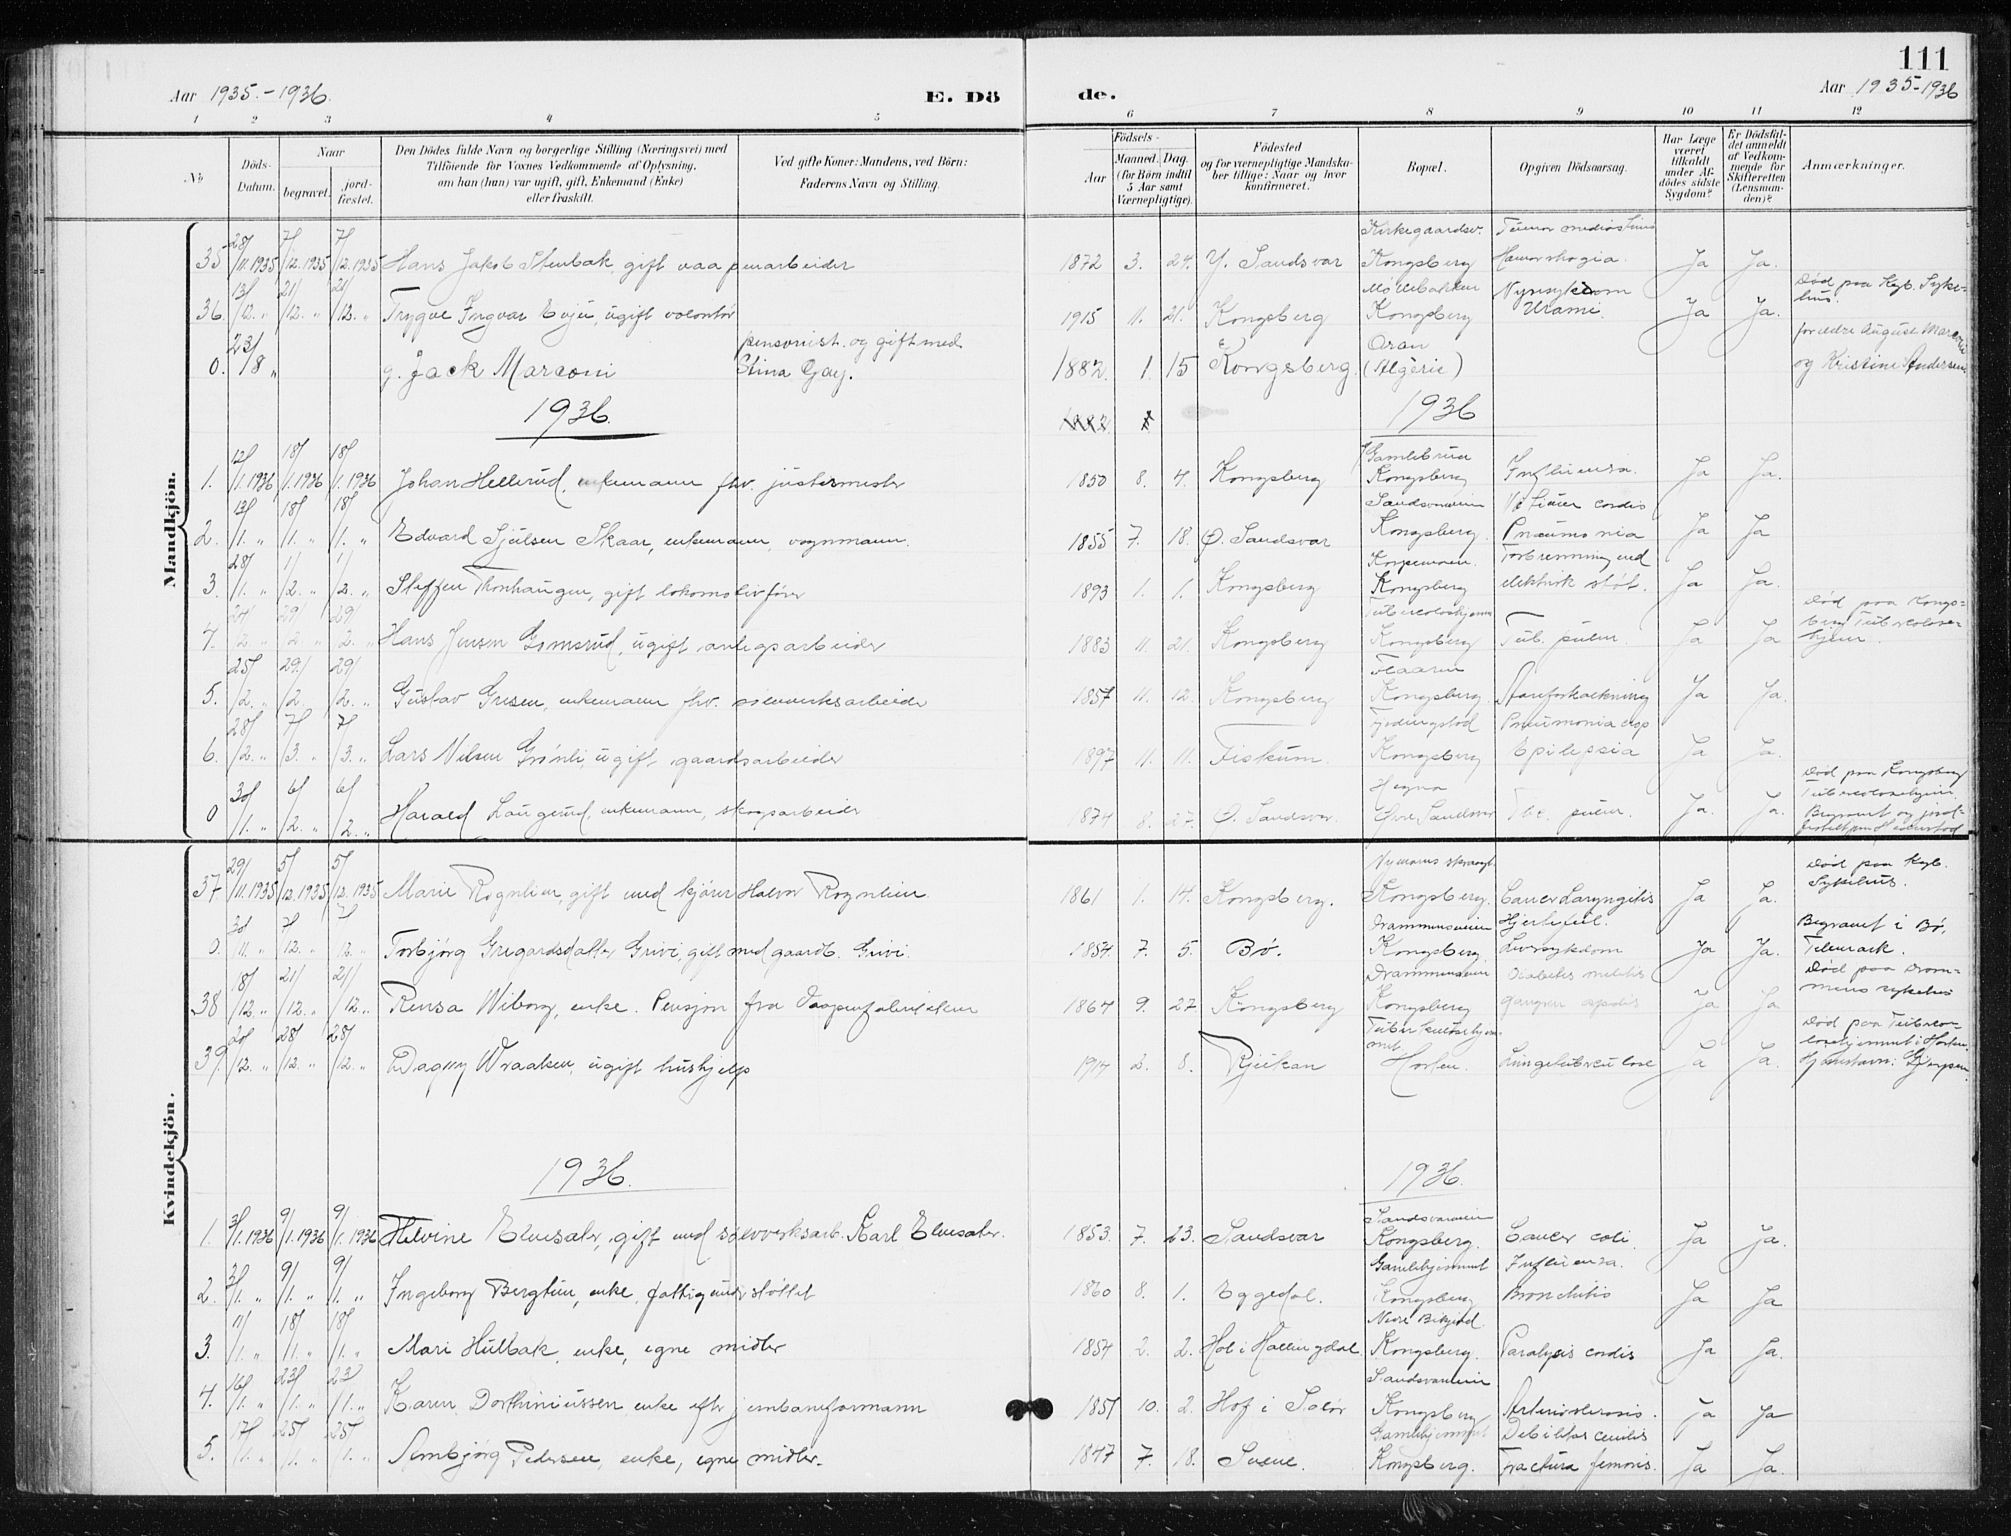 111
Aar 1935.-1936.
E. Dö
de.
Aar 1935-1936
1 2 3 4 5 6 7 8 9 10 11 12
No
Döds-Datum.
Naar
begravet.
jord-fæstet.
Den Dödes fulde Navn og borgerlige Stilling (Næringsvei) med
Tilföiende for Voxnes Vedkommende af Oplysning,
om han (hun) var ugift, gift, Enkemand (Enke)
eller fraskilt.
Ved gifte Koner: Mandens, ved Börn:
Faderens Navn og Stilling.
Födsels-
Aar
Maaned. Dag.
(for Börn indtil
5 Aar samt
Værnepligtige).
Födested
og for værnepligtige Mandska-
ber tillige: Naar og hvor
konfirmeret.
Bopæl.
Opgiven Dödsaarsag.
Har Læge
været
tilkaldt
under Af-
dödes sidste
Sygdom?
Er Dödsfal-
det anmeldt
af Vedkom-
mende for
Skifteretten
(Lensman-
den)?
Anmærkninger.
Mandkjön.
35 28/11.1935 7/12.1935 7/12.1935 Hans Jakob Stenbak, gift vaapenarbeider 1872 3. 24. Y. Sandsvar Kirkegaardsv. Kongsberg Tumor mediastinis Ja Ja.
36. 13/12. " 21/12. " 21/12. " Trygve Ingvar Evju, ugift volontør 1915 11. 21. Kongsberg Kongsberg Nyresykdom Urami. Ja Ja. Død paa Kgb. Sykehus.
0. 23/8 " g. Jack Marconi pensionist. og gift med Stina Gay. 1882. 1. 15 Kongsberg. Oran (Algérie) foreldre August Marconi og Kristine Andersen
1936.
1936
1. 12/1.1936 18/1.1936 18/1.1936 Johan Hellerud, enkemann fhv. justermester 1850 8. 4. Kongsberg Gamlebrua Kongsberg Influensa. Ja Ja.
2. 13/1. " 18/1. " 18/1. " Edvard Sjulsen Skaar, enkemann, vognmann. 1855 7. 18. Ø. Sandsvar Sandsværveien Kongsberg. Vitium cordis Pneumonia Ja Ja
3. 28/1. " 1/2. " 1/2. " Steffen Thonhaugen, gift lokomotivfører 1893 1. 1. Kongsberg Korpemoen. Kongsberg Forbrenning ved elektrisk støt. Ja Ja.
4. 24/2. " 29/2 " 29/2. " Hans Jensen Gomsrud, ugift anlegsarbeider 1883 11. 21. Kongsberg Tuberculosehjemmet Kongsberg Tub. pulm. Ja Ja Død paa Kongsberg Tuberculosehjem.
5. 25/2. " 29./2 " 29/2. " Gustav Gresen, enkemann fhv. sølvverksarbeider 1857 11. 12. Kongsberg Flaaren Kongsberg. Aareforkalkning Ja Ja.
6. 28/2. " 7/3. " 7/3. " Lars Nilsen Grønli, ugift gaardsarbeider 1897 11. 11. Fiskum. Kongsberg Pneumonia Epilepsia Ja Ja.
0 30/1. " 6/2. " 6/2. " Harald Laugerud, enkemann, skogsarbeider 1874 8. 27. Ø. Sandsvær. Hegna Øvre Sandsvær Tbc. pulm. Ja. Ja. Død paa Kongsberg Tuberculosehjem. Begravet og jordfæstet paa
Kvindekjön.
37. 29/11.1935 5/12.1935 5/12.1935 Marie Rognlien, gift med kjører Halvor Rognlien. 1861 1. 14. Kongsberg. Kongsberg. Cancer Laryngitis Ja Ja. Død paa Kgb. Sykehus.
0. 30/11. " 7/12. " 7/12. " Torbjörg Gregardsdatter Grivi, gift med gaardb. Grivi. 1854. 7. 5. Bø. Drammensveien Kongsberg. Hjertefeil. Leversykdom Ja Ja. Begravet i Bø, Telemark.
38 18/12. " 21/12. " 21/12. " Rensa Wiborg, enke. Pensjon fra Vaapenfabrikken 1864 9. 27 Kongsberg Drammensveien Kongsberg Diabetes melitis gangren Ja Ja Død paa Drammens sykehus
39. 20/12. " 28/12. " 28/12. " Dagny Wraalsen, ugift hushjelp 1914 2. 8. Rjukan Tuberkulosehjemmet Horten. Lungetuberculose Ja Ja. Død paa Tuberculosehjemmet i Horten. Hjemstavn: Gjerpen.
1936.
1936.
1. 3/1.1936 9/1.1936 9/1.1936 Helvine Elvesæter, gift med sølvverksarb. Karl Elvesæter. 1853. 7. 23. Sandsvær Sandsværveien Kongsberg. Cancer coli. Ja Ja.
2. 3/1. " 9/1. " 9/1. " Ingeborg Berglien, enke, fattigunderstøttet 1860 8. 1. Eggedal. Gamlehjemmet Kongsberg Influensa. Bronchitis Ja Ja
3. 11/1. " 18/1. " 18/1. " Mari Hulbak, enke, egne midler 1854 2. 2. Hol i Hallingdal. Kongsberg. Paralysis cordis Ja Ja.
4. 16/1. " 23/1. " 23/1. " Karen Dorthiniussen enke efter jernbaneformann 1851 10. 2. Hof i Solør Sandsværveien Kongsberg Arteriosclerosis. Ja Ja
5. 17/1. " 25/1. " 25/1. " Sembjörg Pedersen, enke, egne midler. 1847 7. 18. Svene. Gamlehjemmet Kongsberg. Debilitas cenilis Fractura femoris. Ja Ja.